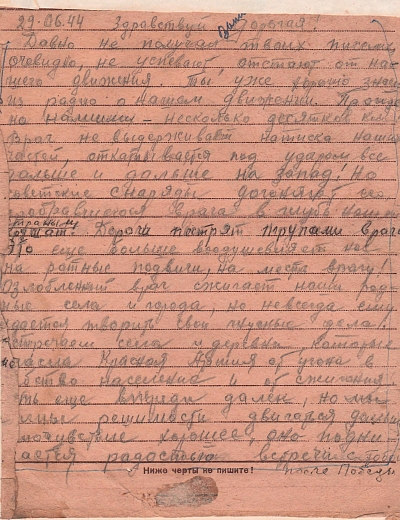 29.06.44 Здравствуй Дина дорогая!
Давно не получал твоих писем,
очевидно, не успевают, отстают от на-
шего движения. Ты уже хорошо знаешь
из радио о нашем движении. Пройде-
но нашими – несколько десятков
Враг не выдерживает натиска наших
частей, откатывается под ударом все
дальше и дальше на запад. Но
советские снаряды догоняют его,
врага в глубь
Дороги пестрят трупами врага
Это еще больше воодушевляет нас
на ратные подвиги, на месть врагу!
Озлобленный враг сжигает наши род-
ные села и города, но не всегда ему
удается творить свои гнусные дела!
Встречаем села и деревни, которые
спасла Красная Армия от угона в
рабство населения и от сжигания
Путь еще впереди далек, но мы
полны решимости двигаться дальше
самочувствие хорошее, оно подни-
мается радостью встречи с тобой
Ниже черты не пишите! после Победы